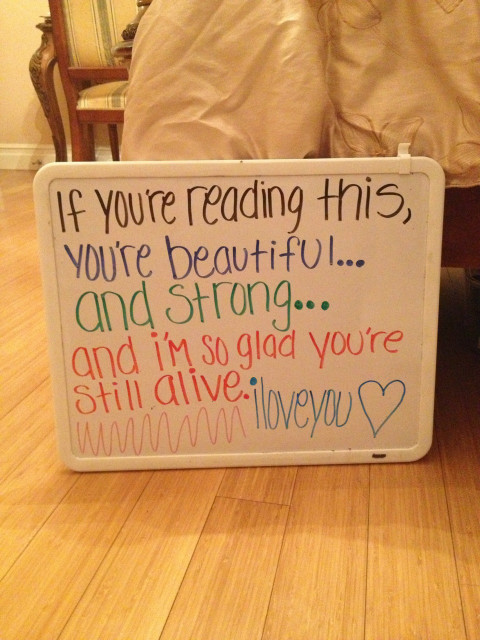 If you're reading this,
you're beautiful...
and strong...
and i'm so glad you're
still alive. iloveyou